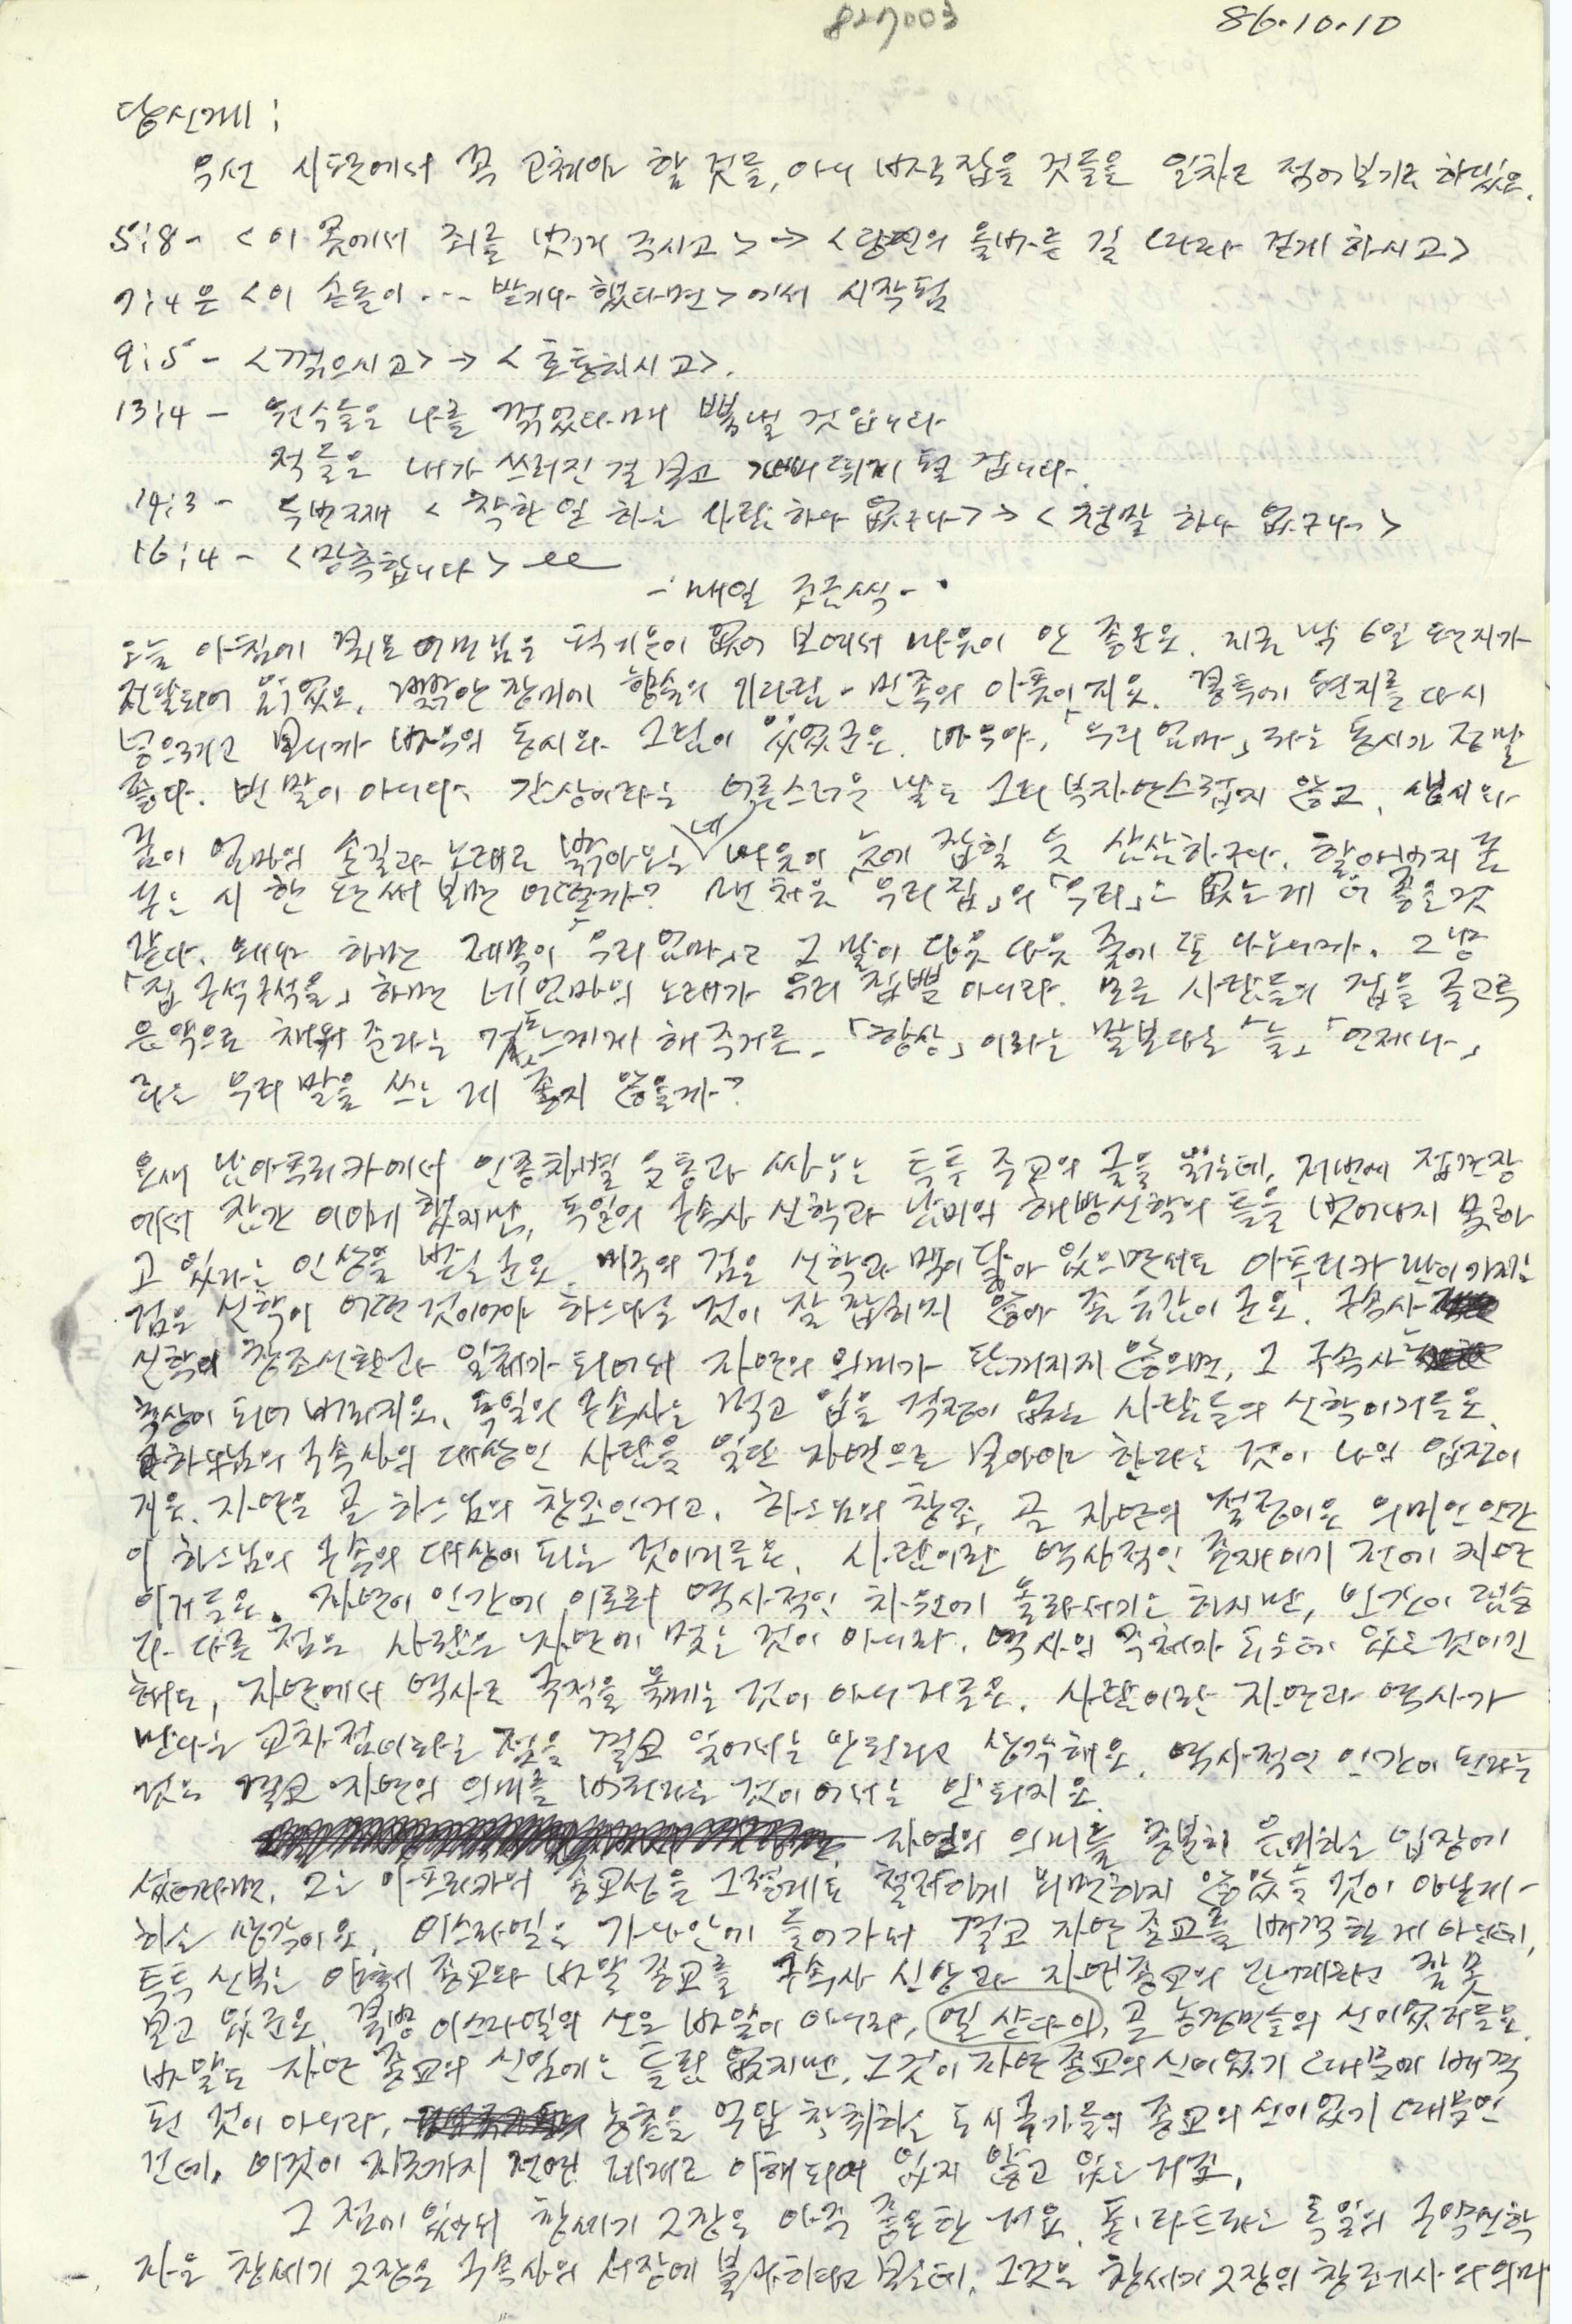 827003
86.10.10
당신게;
우선 시편에서 꼭 고쳐야 할 것들, 아니 바로잡을 것들을 일차로 적어보기로 하겠오.
5:8 - <이 곳에서 죄를 벗겨 주시고> → <당신의 올바른 길 따라 걷게 하시고>
7:4은 <이 손들이 ... 받기나 했다면>에서 시작됨
9:5 - <꺾으시고> → <호통치시고>.
13:4 - 원수들은 나를 꺾었다며 뽐낼 것입니다
적들은 내가 쓰러진 걸 보고 기뻐 뛰게 될 겁니다.
14:3 - 두번째 <착한 일 하는 사람 하나 없구나> → <정말 하나 없구나>
16:4 - <망측합니다>
- 매일 조금씩 -
오늘 아침에 어머님은 기운이 없어 보여서 마음이 안 좋군요. 지금 막 6일 편지가
전달되어 읽었오. 함속의 기다림 - 민족의 아픔이지요. 봉투에 편지를 다시
넣으려고 보니까 바우의 동시와 그림이 있었군요. 바우야, 「우리 엄마」라는 동시가 정말
좋다. 빈 말이 아니다. 어른스러운 말도 그리 부자연스럽지 않고,
엄마의 손길과 노래로 네 마음이 눈에 잡힐 듯 산산하구나. 할아버지
시 한 편 써 보면 어떨까? 맨 처음 「우리 집」의 「우리」는 없는 게 더 좋을 것
같다. 왜냐 하면 제목이 「우리 엄마」고 그 말이 다음 다음 줄에 또 나오니까. 그냥
「집 구석구석을」 하면 네 엄마의 노래가 우리 집뿐 아니라. 모든 사람들의 집을 골고루
음악으로 채워 준다는 것도 느끼게 해 주거든. 「항상」이라는 말보다는 「늘」 「언제나」
라는 우리 말을 쓰는 게 좋지 않을까?
요새 남아프리카에서 인종차별 운동과 싸우는 투투 주교의 글을 읽는데, 저번에 접견장
에서 잠간 이야기 했지만, 독일의 구속사 신학과 남미의 해방신학의 틀을 벗어나지 못하
고 있다는 인상을 받는군요. 미국의 검은 신학과 맥이 닿아 있으면서도 아프리카만이 가지는
검은 신학이 어떤 것이어야 하느냐는 것이 잘 잡히지 않아 좀 유감이군요. 구속사
신학이 창조신앙과 일체가 되어서 자연의 의미가 한께지지 않으면, 그 구속사는
추상이 되어 버리지요. 독일의 구속사는 먹고 입을 걱정이 없는 사람들의 신학이거든요.
하느님의 구속사의 대상인 사람을 일단 자연으로 보아야 한다는 것이 나의 입장이
지요. 자연은 곧 하느님의 창조인거고. 하느님의 창조, 곧 자연의 절정이요 의미인 인간
이 하느님의 구속의 대상이 되는 것이거든요. 사람이란 역사적인 존재이기 전에 자연
이거든요. 자연이 인간에 이르러 역사적인 차원에 올라서기는 하지만, 인간이
다른 점은 사람은 자연에 멎는 것이 아니라. 역사의 주체가 되는데 있는 것이긴
해도, 자연에서 역사로 호적을 옮기는 것이 아니거든요. 사람이란 자연과 역사가
만나는 교차점이라는 점을 결코 잊어서는 안된다고 생각해요. 역사적인 인간이 된다는
것은 결코 자연의 의미를 버리는 것이어서는 안 되지요.
자연의 의미를 충분히 음미하는 입장에
섰더라면, 그는 아프리카의 종교성을 그렇게도 철저하게 외면하지 않았을 것이 아닐까 -
하는 생각이오. 이스라엘은 가나안에 들어가서 결코 자연 종교를 배격한 게 아닌데,
투투 신부는 야훼 종교와 바알 종교를 구속사 신앙과 자연종교의 관계라고 잘못
보고 있군요. 해방 이스라엘의 신은 바알이 아니라, 엘 샤다이, 곧 농경민들의 신이었거든요.
바알도 자연 종교의 신임에는 틀림 없지만, 그것이 자연 종교의 신이었기 때문에 배격
된 것이 아니라, 농촌을 억압 착취하는 도시 국가들의 종교의 신이었기 때문인
건데. 이것이 지금까지 전연 제대로 이해되어 있지 않고 있는 거죠.
그 점에 있어서 창세기 2장은 아주 중요한 거요. 폰·라트라는 독일의 구약신학
자은 창세기 2장은 구속사의 서장에 불과하다고 보는데, 그것은 창세기 2장의 창조기사의 의미